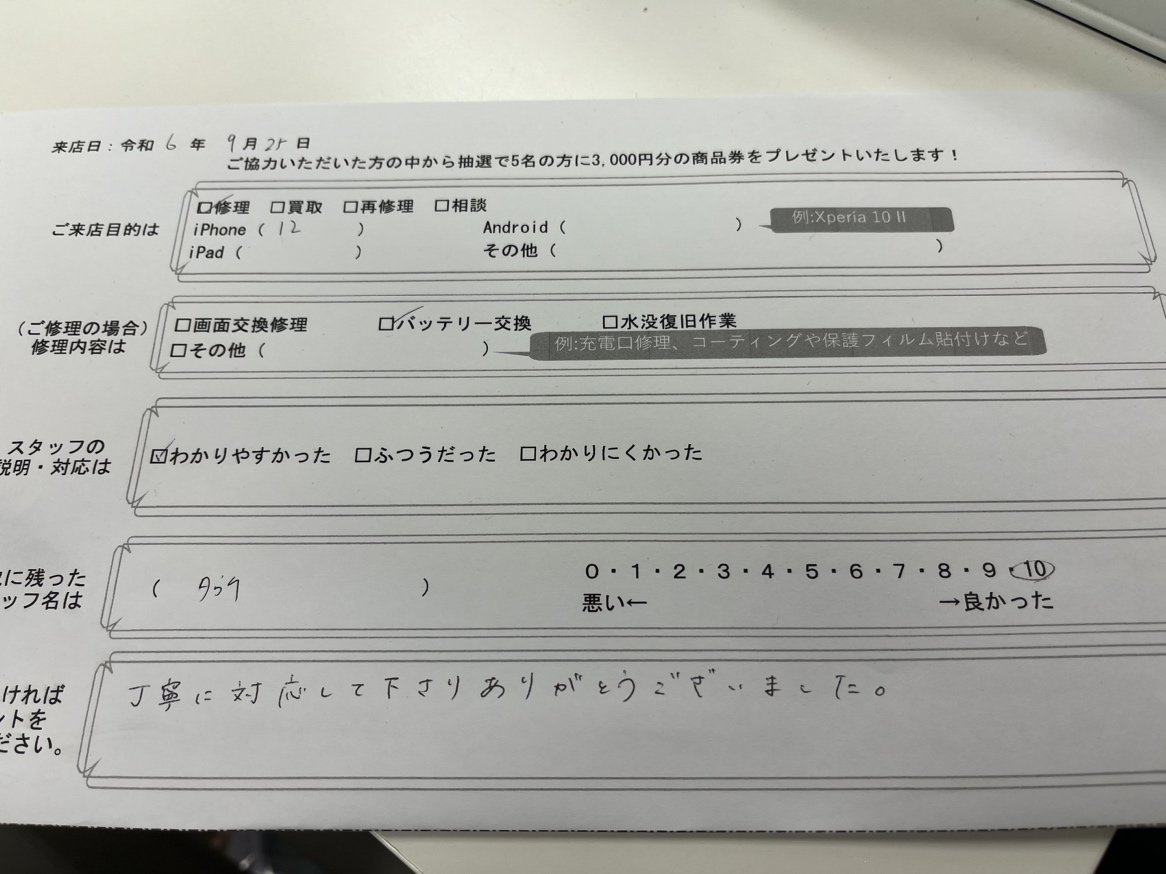 来店日：令和 6 年 9月25日
ご協力いただいた方の中から抽選で5名の方に3,000円分の商品券をプレゼントいたします！
ご来店目的は
☑修理 □買取 □再修理 □相談
iPhone（ 12 ） Android（ ） 例:Xperia 10 II
iPad（ ） その他（ ）
（ご修理の場合）
修理内容は
□画面交換修理 ☑バッテリー交換 □水没復旧作業
□その他（ ） 例:充電口修理、コーティングや保護フィルム貼付けなど
スタッフの
説明・対応は
☑わかりやすかった □ふつうだった □わかりにくかった
に残った
ッフ名は
（ ）
0・1・2・3・4・5・6・7・8・9・10
悪い← →良かった
ければ
ントを
ださい。
丁寧に対応して下さりありがとうございました。